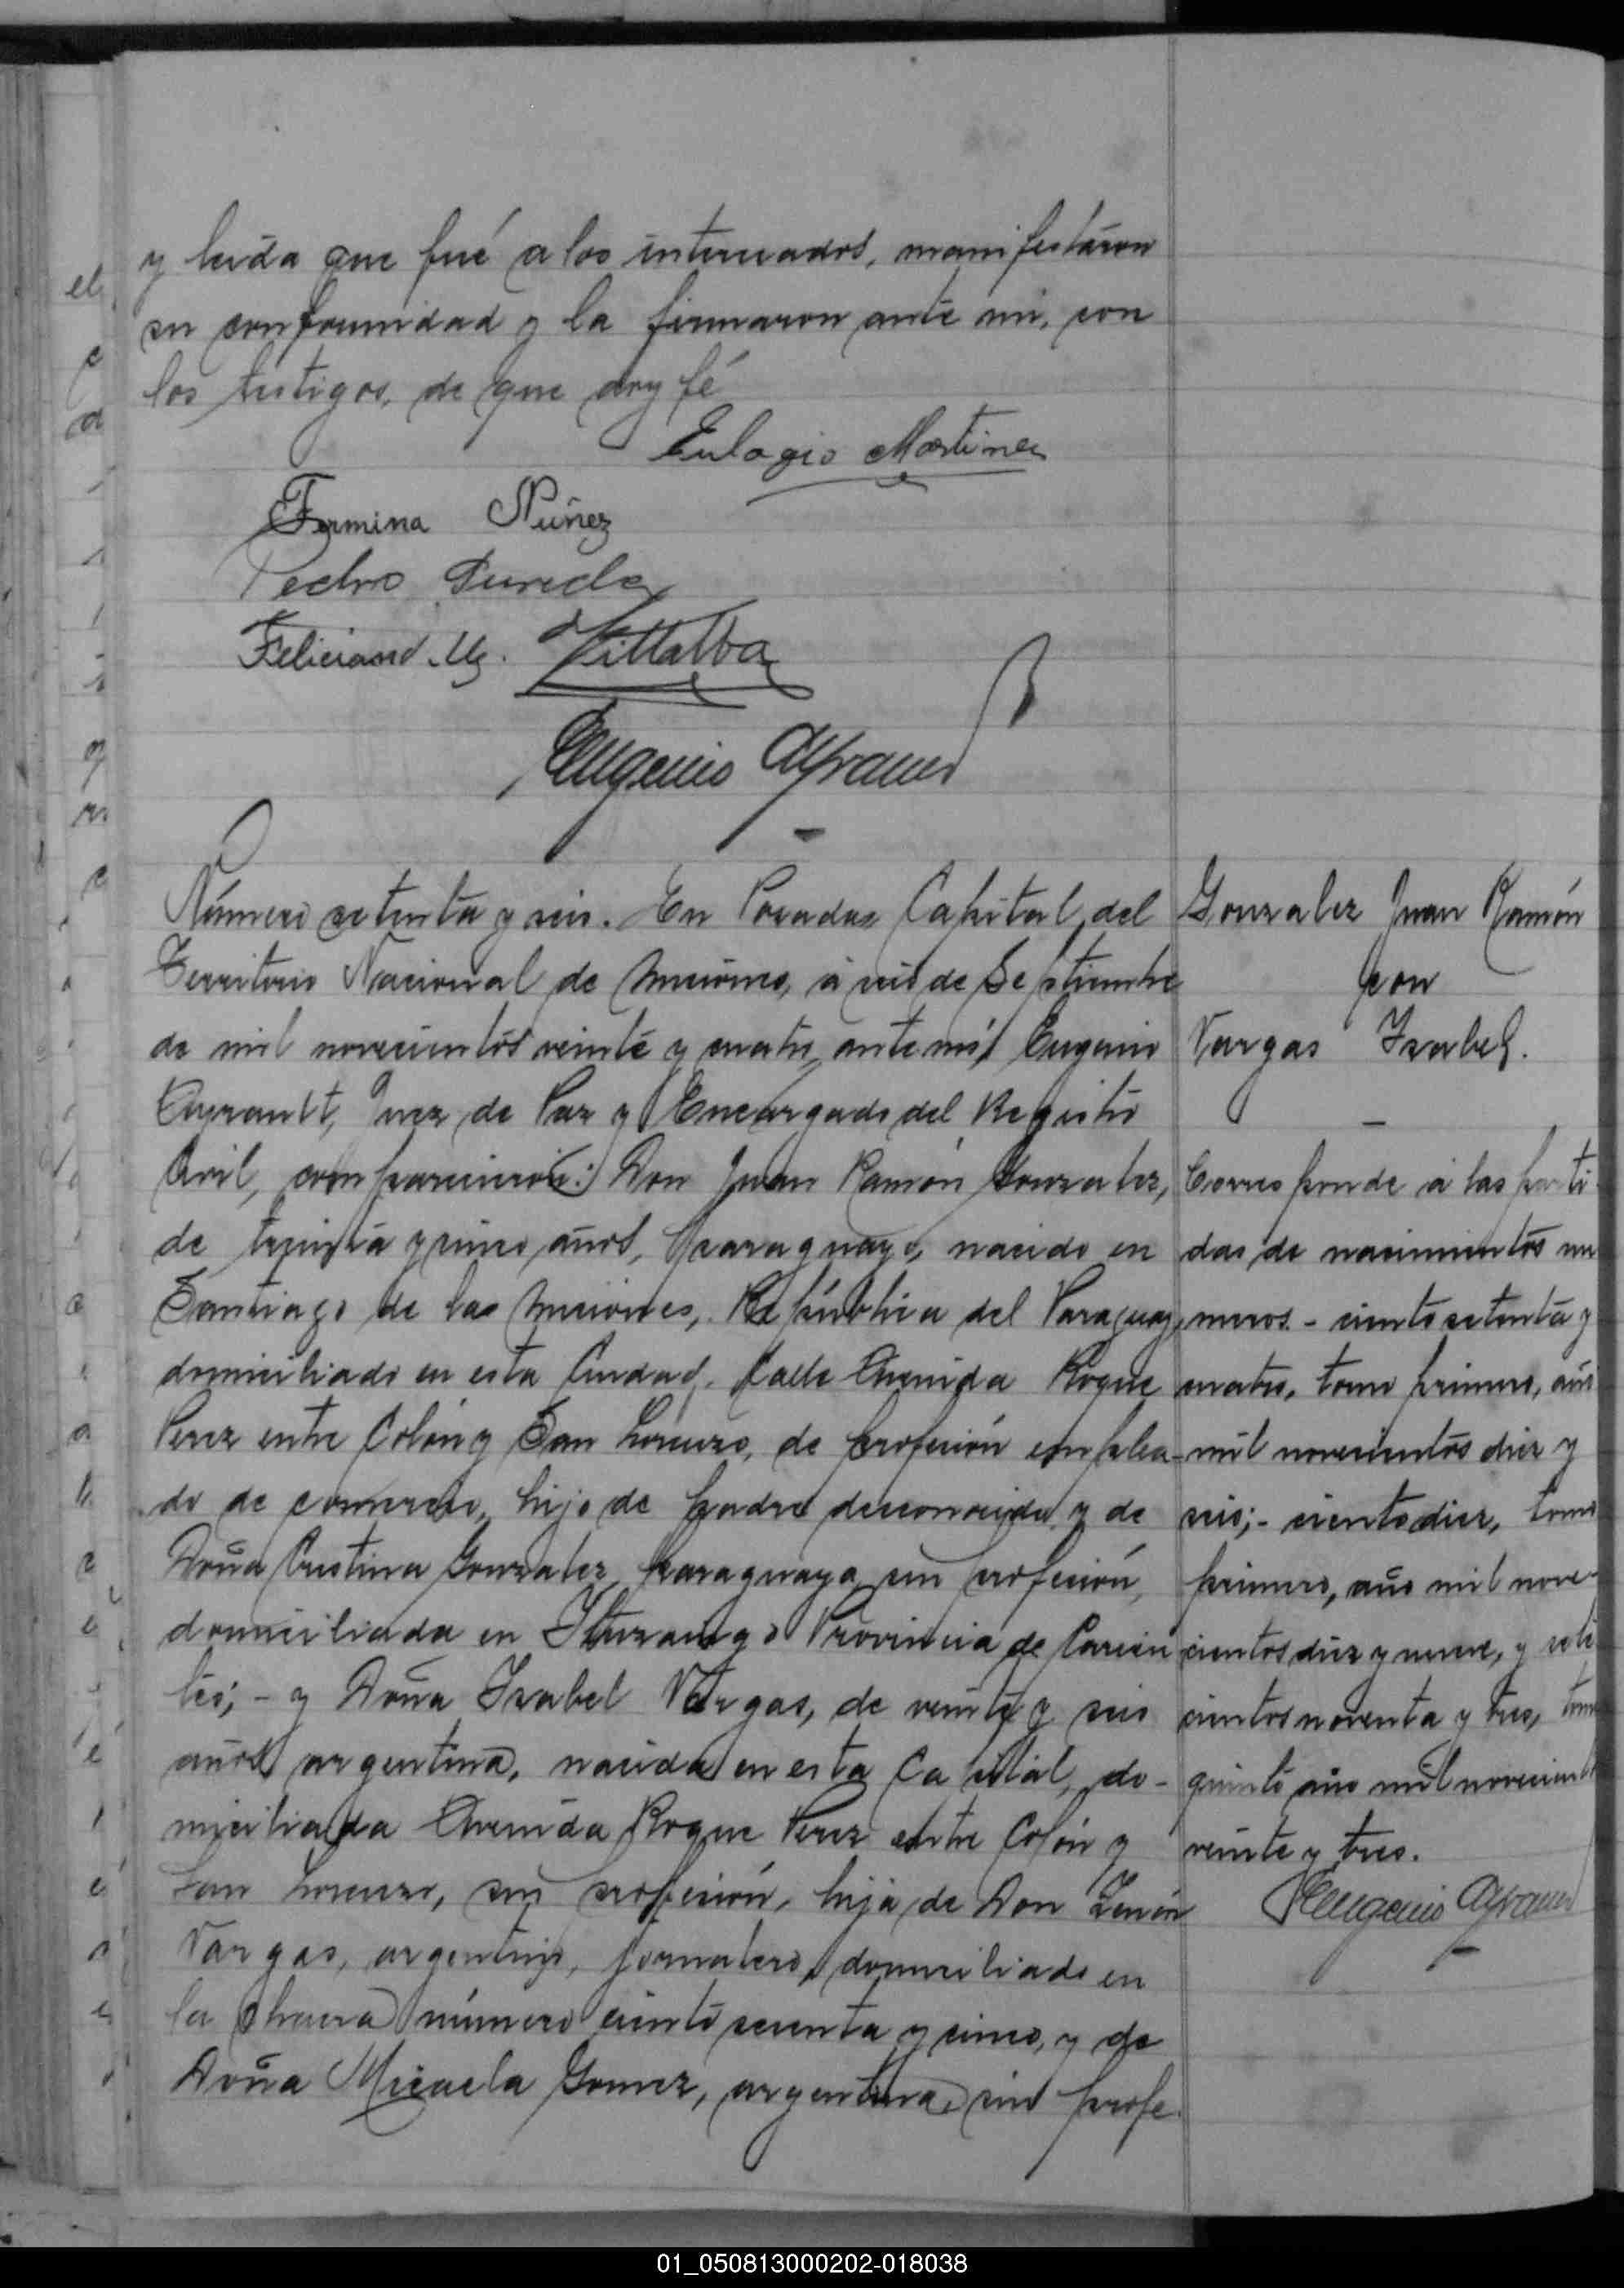 y leida que fué a los interesados, manifestáron
su conformidad y la firmaron ante mi, con
los testigos, de que doy fé
Eulogio Martinez
Fermina Nuñez
Pedro
Feliciano Villalba
Eugenio Ayrault
Número setenta y seis. En Posadas Capital del
Territorio Nacional de Misiones, á seis de Septiembre
de mil novecientos veinte y cuatro, ante mí, Eugenio
Ayrault, Juez de Paz y Encargado del Registro
Civil, comparecieron: Don Juan Ramón Gonzalez,
de treinta y cinco años, paraguayo, nacido en
Santiago de las Misiones, República del Paraguay,
domiciliado en esta Ciudad, Calle Avenida Roque
Perez entre Colón y San Lorenzo, de profesión emplea-
do de comercio, hijo de padre desconocido y de
Doña Cristina Gonzalez, paraguaya, sin profesión,
domiciliada en Ituzaingo Provincia de Corrien
tes; - y Doña Isabel Vargas, de veinte y seis
años, argentina, nacida en esta Capital, do-
miciliada Avenida Roque Perez entre Colón y
San Lorenzo, sin profesión, hija de Don Zenón
Vargas, argentino, jornalero, domiciliado en
la chacra número ciento sesenta y cinco, y de
Doña Micaela Gomez, argentina, sin profe
Gonzalez Juan Ramón
con
Vargas Isabel.
Corresponde á las parti
das de nacimientos nu
meros - ciento setenta y
cuatro, tomo primero, año
mil novecientos diez y
seis; - ciento diez, tomo
primero, año mil nove-
cientos diez y nueve, y sete
cientos noventa y tres, tomo
quinto año mil novecientos
veinte y tres.
Eugenio Ayrault
01_050813000202-018038